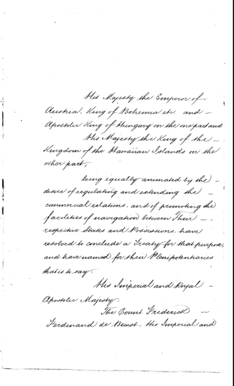 His Majesty the Emperor of
Austria, King of Bohemia etc and
Apostolic King of Hungary on the one part and
His Majesty the King of the
Kingdom of the Hawaiian Islands on the
other part,
being equally animated by the
desire of regulating and extending the
commercial relations, and of promoting the
facilities of navigation between Their
respective States and Possessions, have
resolved to conclude a Treaty for that purpose,
and have named for their Plenipotentiaries
that is to say
His Imperial and Royal
Apostolic Majesty
The Count Frederick
Ferdinand de Beust, His Imperial and